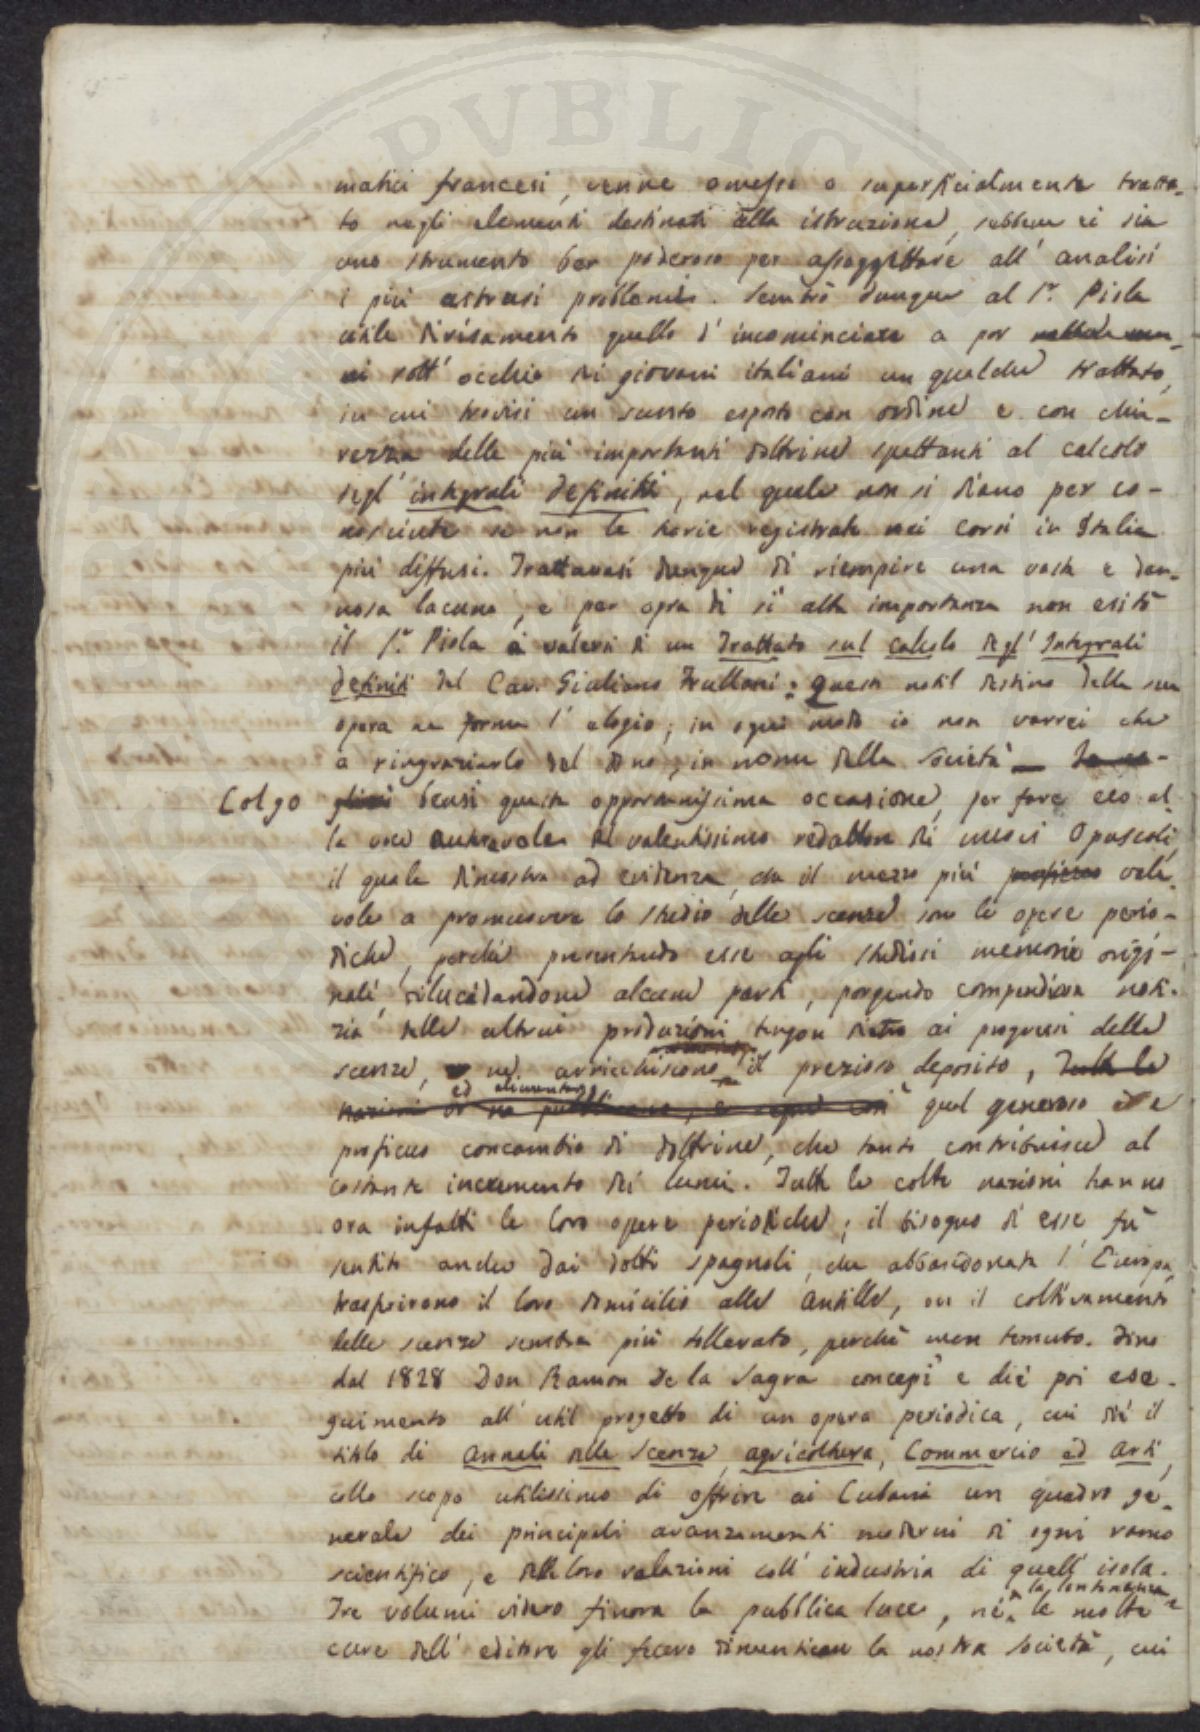 matici francesi, venne omesso o superficialmente tratta-
to negli elementi destinati alla istruzione, sebbene ei sia
uno strumento ben poderoso per assoggettare all' analisi
i più astrusi problemi. Sembrò dunque al Sr. Piola
utile divisamento quello d' incominciare a por
sott' occhio dei giovani italiani un qualche trattato,
in cui trovisi un sunto esposto con ordine e con chia-
rezza delle più importanti dottrine spettanti al calcolo
degl' integrali definiti, nel quale non si diano per co-
nosciute se non le teorie registrate nei corsi in Italia
più diffusi. Trattavasi dunque di riempire una vasta e dan-
nosa lacuna, e per opra di sì alta importanza non esitò
il Sr. Piola a valersi di un Trattato sul calcolo degl' Integrali
definiti del Cav. Giuliano Frullani; questo nobil destino della sua
opera ne forma l' elogio; in ogni modo io non vorrei che
a ringraziarlo del dono, in nome della Società
Colgo bensì questa opportunissima occasione, per fare eco al-
la voce autorevole del valentissimo redattore di nuovi Opuscoli,
il quale dimostra ad evidenza, che il mezzo più proficuo vale-
vole a promuovere lo studio delle scienze sono le opere perio-
diche, perchè presentando esse agli studiosi memorie origi-
nali, dilucidandone alcune parti, porgendo compendiosa noti-
zia delle altrui produzioni tengon dietro ai progressi delle
scienze, ne arricchiscono il prezioso deposito, Tutte le
nazioni ed alimentano quel generoso e
proficuo concambio di dottrine, che tanto contribuisce al
costante incremento dei lumi. Tutte le colte nazioni hanno
ora infatti le loro opere periodiche; il bisogno di esse fù
sentito anche dai dotti spagnoli, che abbandonata l' Europa,
trasferirono il loro domicilio alle Antille, ove il coltivamento
delle scienze sembra più tollerato, perchè men temuto. Fino
dal 1828 Don Ramon De la Sagra concepì e diè poi ese-
guimento all' util progetto di un opera periodica, cui diè il
titolo di Annali delle Scienze, agricoltura, Commercio ed Arti,
collo scopo utilissimo di offrire ai Cubani un quadro ge-
nerale dei principali avanzamenti moderni di ogni ramo
scientifico, e delle loro relazioni coll' industria di quell' isola.
Tre volumi videro finora la pubblica luce, nè la lontananza e le molte
cure dell' editore gli fecero dimenticare la nostra Società, cui